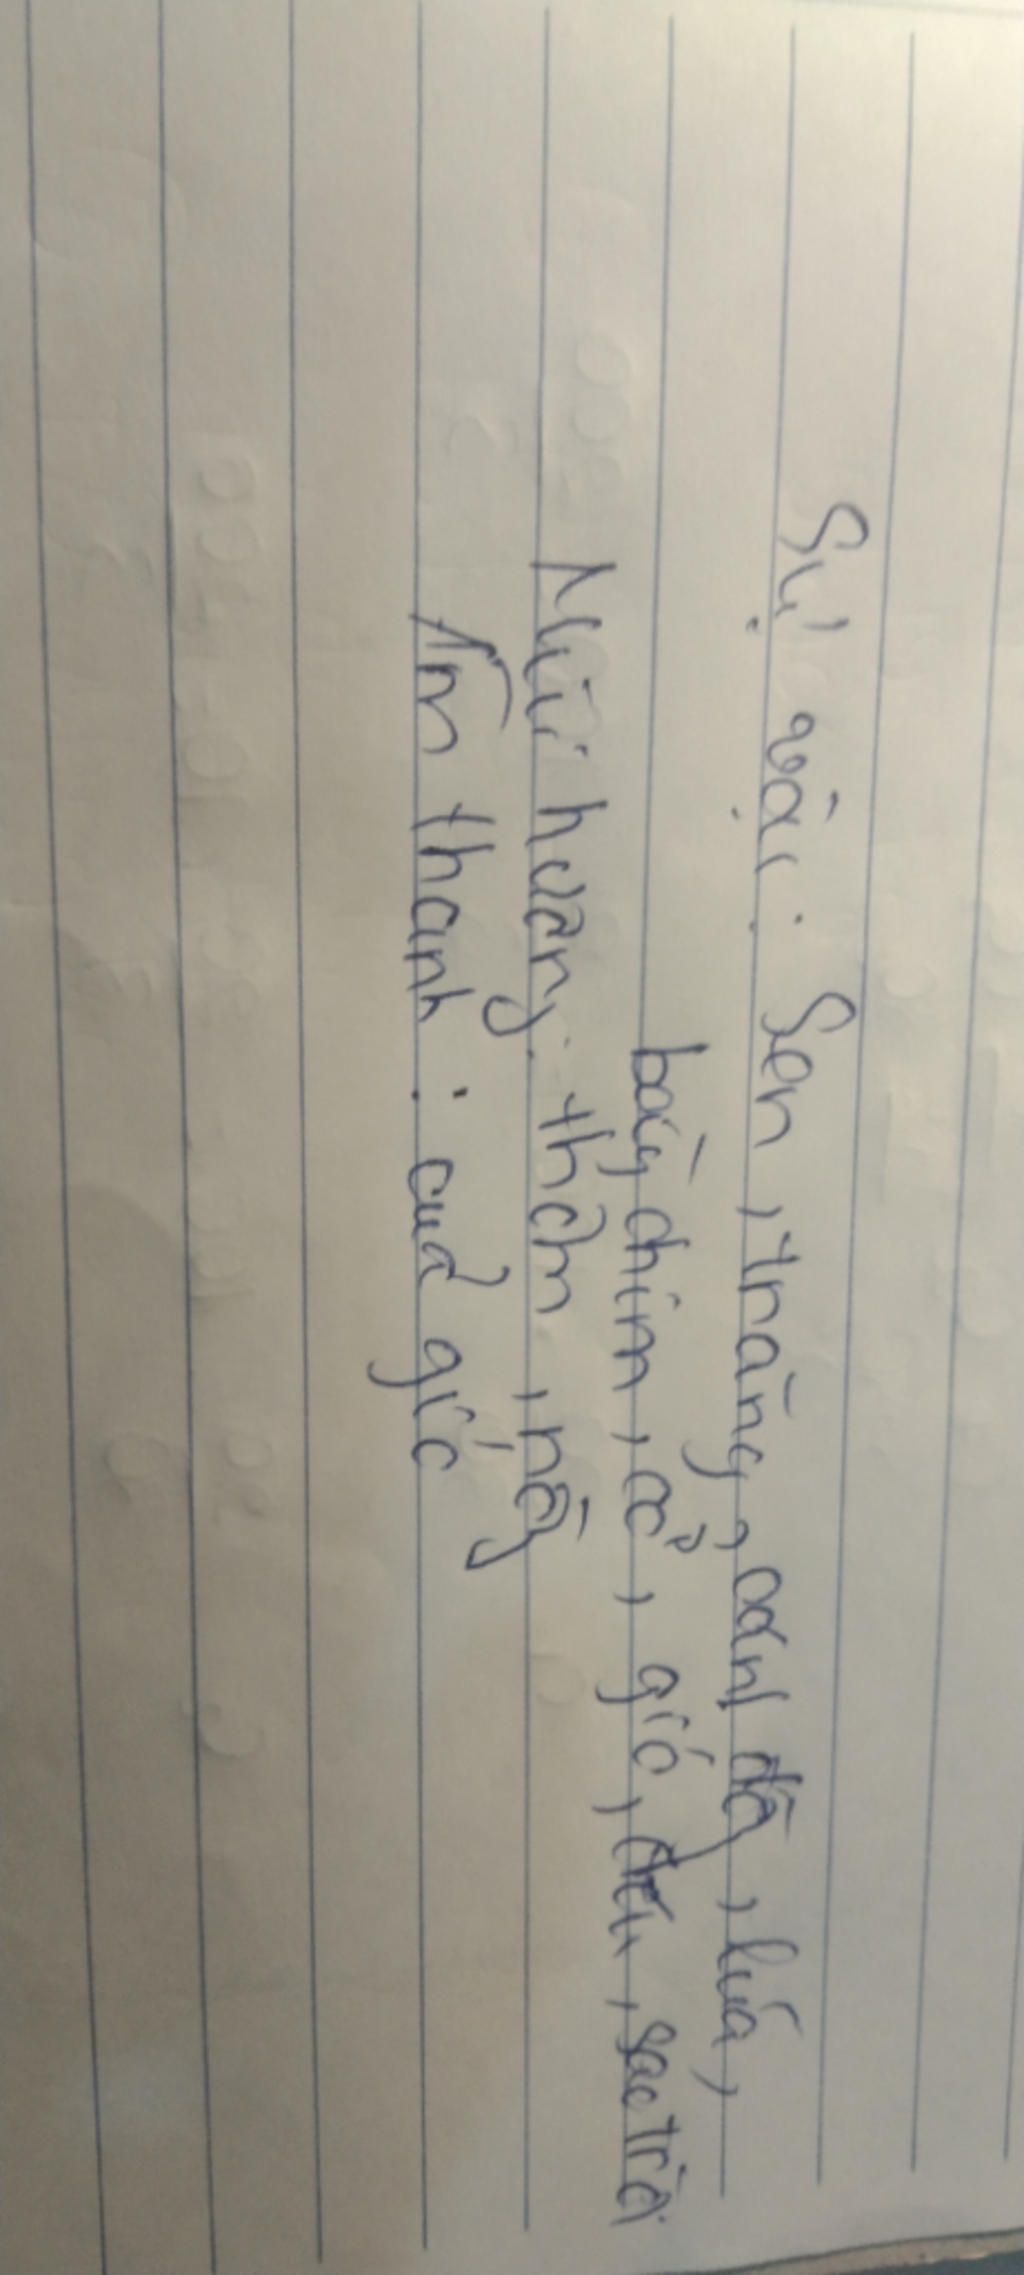 Sự vật: Sen, trăng, cánh đồng, lúa,
bông, chim, cỏ, gió, diều, sao trời
Mùi hương: thơm, nồng
Âm thanh: của gió